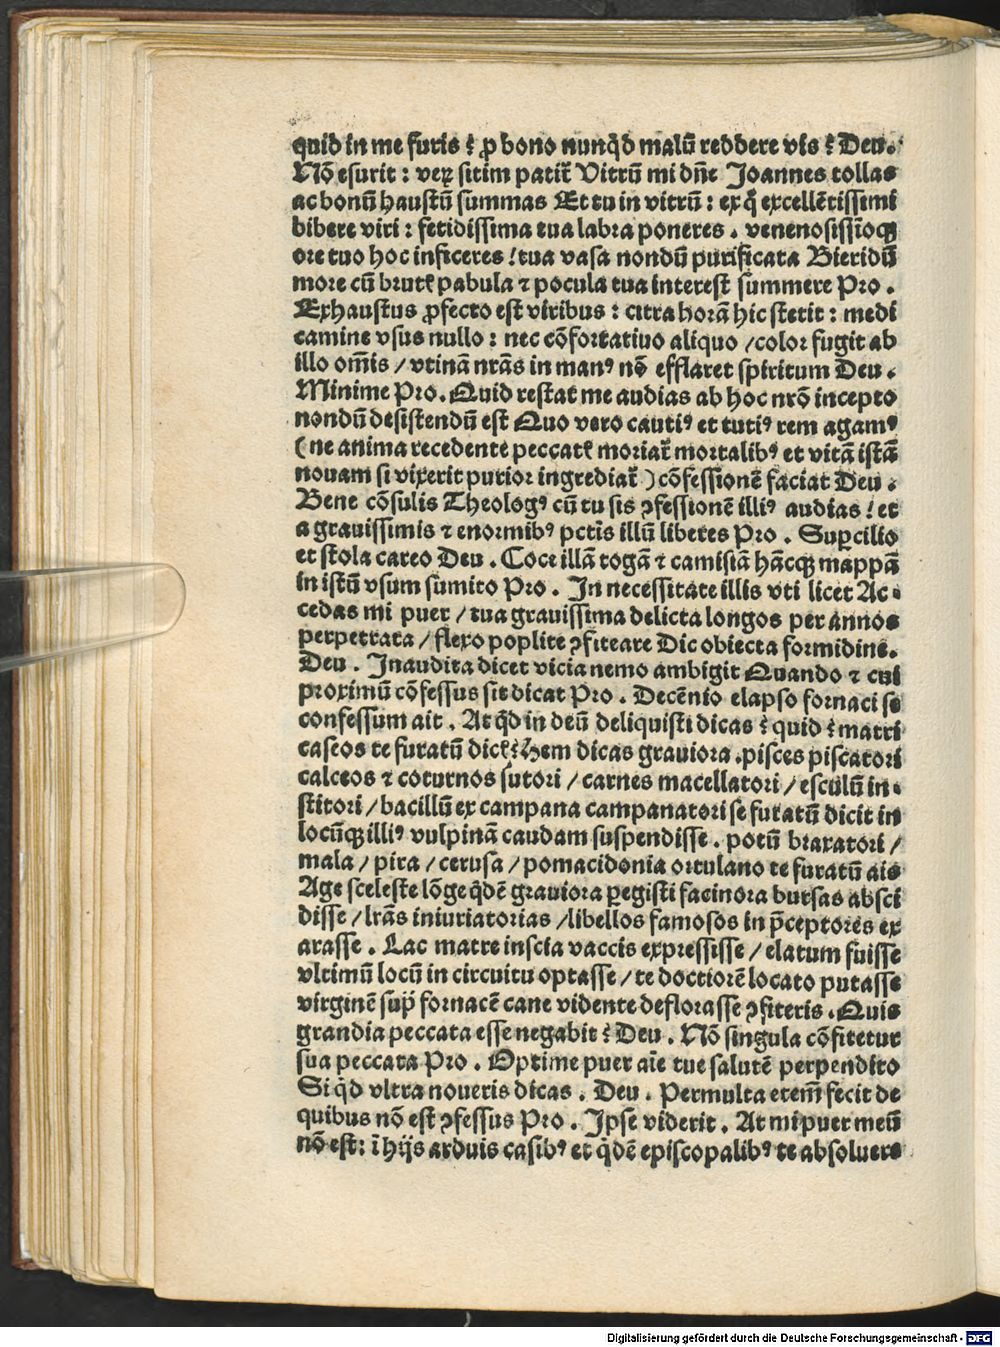 quid in me furis ? ꝓ bono nunqͥd malū reddere vis ? Deu.
Nō esurit : veꝝ sitim patit᷑ Vitrū mi dn̄e Joannes tollas
ac bonū haustū summas Et tu in vitrū : ex q̊ excellētissimi
bibere viri : fetidissima tua labra poneres . venenosissīoqꝫ
ore tuo hoc inficeres ! tua vasa nondū purificata Bieridū
more cū brutꝭ pabula ⁊ pocula tua interest summere Pro .
Exhaustus ꝓfecto est viribus : citra horā hic stetit : medi
camine vsus nullo : nec cōfortatiuo aliquo / color fugit ab
illo om̄is / vtinā nr̄as in manꝰ nō efflaret spiritum Deu .
Minime Pro . Quid restat me audias ab hoc nr̄o incepto
nondū desistendū est Quo vero cautiꝰ et tutiꝰ rem agamꝰ
( ne anima recedente peccatꝭ moriat᷑ mortalibꝰ et vitā istā
nouam si vixerit purior ingrediat᷑ ) cōfessionē faciat Deu .
Bene cōsulis Theologꝰ cū tu sis ꝯfessionē illiꝰ audias ! et
a grauissimis ⁊ enormibꝰ pctīs illū liberes Pro . Suꝑcilio
et stola careo Deu . Coce illā togā ⁊ camisiā hācqꝫ mappā
in istū vsum sumito Pro . In necessitate illis vti licet Ac⸗
cedas mi puer / tua grauissima delicta longos per annos
perpetrata / flexo poplite ꝯfiteare Dic obiecta formidine.
Deu . Inaudita dicet vicia nemo ambigit Quando ⁊ cui
proximū cōfessus sit dicat Pro . Decēnio elapso fornaci se
confessum ait . At qͥd in deū deliquisti dicas ? quid ? matri
caseos te furatū dicꝭ ? Hem dicas grauiora . pisces piscatori
calceos ⁊ coturnos sutori / carnes macellatori / esculū in⸗
stitori / bacillū ex campana campanatori se furatū dicit in
locūqꝫ illiꝰ vulpinā caudam suspendisse . potū braxatori /
mala / pira / cerusa / pomacidonia ortulano te furatū ais
Age sceleste lōge qͥdē grauiora ꝑegisti facinora bursas absci
disse / lr̄as iniuriatorias / libellos famosos in p̄ceptores ex
arasse . Lac matre inscia vaccis expressisse / elatum fuisse
vltimū locū in circuitu optasse / te doctiorē locato putasse
virginē suꝑ fornacē cane vidente deflorasse ꝯfiteris . Quis
grandia peccata esse negabit ? Deu . Nō singula cōfitetur
sua peccata Pro . Optime puer aīe tue salutē perpendito
Si qͥd vltra noueris dicas . Deu . Permulta etem̄ fecit de
quibus nō est ꝯfessus Pro . Ipse viderit . At mi puer meū
nō est : ī hijs arduis casibꝰ et qͥdē episcopalibꝰ te absoluere
Digitalisierung gefördert durch die Deutsche Forschungsgemeinschaft - DFG